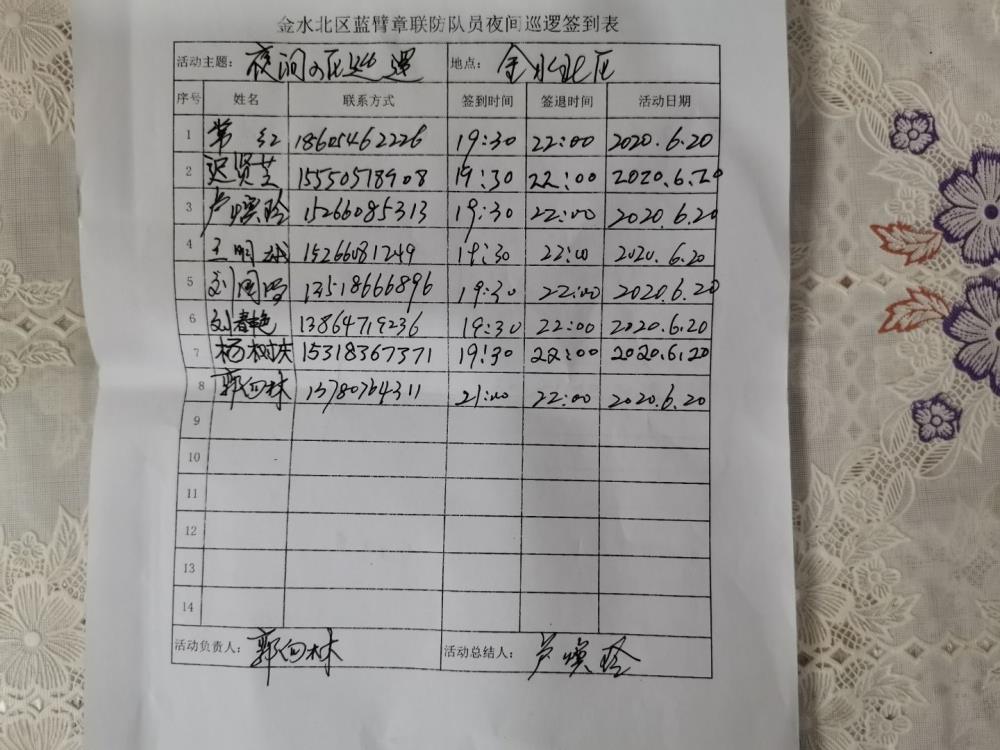 金水北区蓝臂章联防队员夜间巡逻签到表
活动主题: 夜间 巡逻 地点: 金水北区
序号 姓名 联系方式 签到时间 签退时间 活动日期
1 常红 18605462226 19:30 22:00 2020.6.20
2 迟贤芝 15550578908 19:30 22:00 2020.6.20
3 卢焕玲 15266085313 19:30 22:00 2020.6.20
4 王明 15266081249 19:30 22:00 2020.6.20
5 刘国 13518666896 19:30 22:00 2020.6.20
6 刘春艳 13864719236 19:30 22:00 2020.6.20
7 杨树庆 15318367371 19:30 22:00 2020.6.20
8 郭向林 13780764311 21:00 22:00 2020.6.20
9
10
11
12
13
14
活动负责人: 郭向林 活动总结人: 卢焕玲